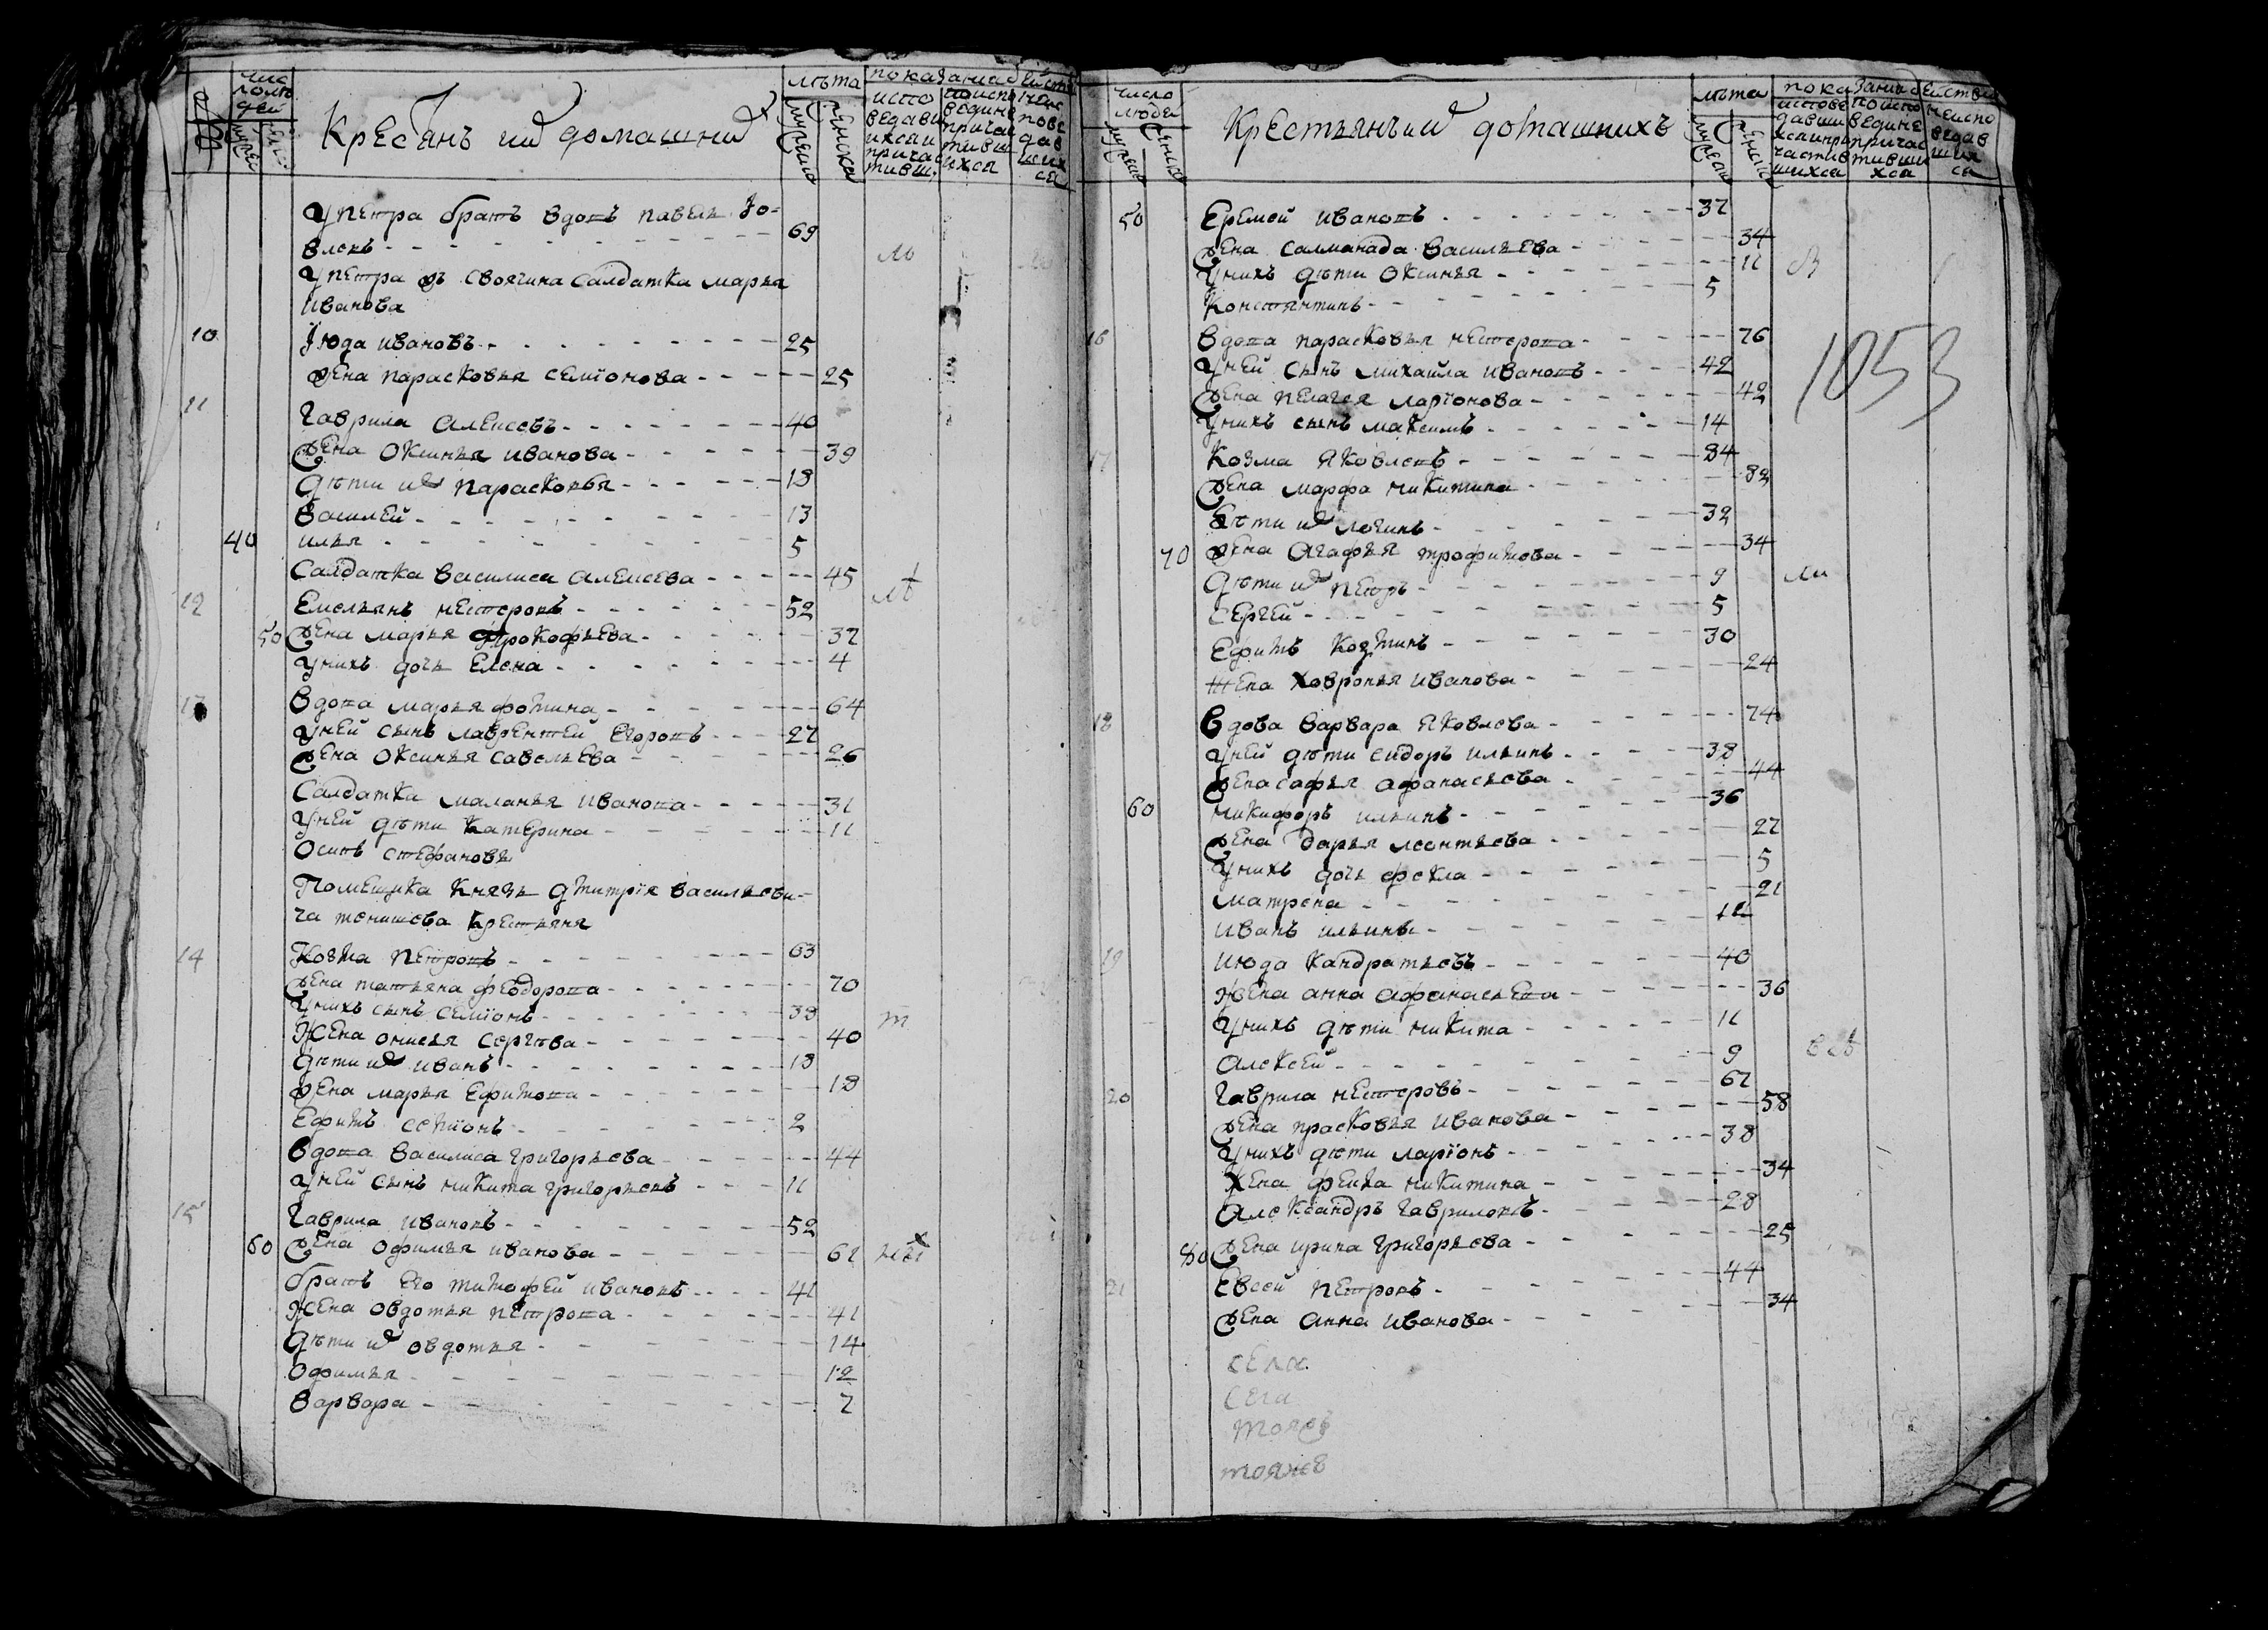 числ людей
Кресьянъ их домашних
лѣта
показание действ
мужеска
женска
исповедавшихся и причастивш.
исповедине причастившихся
неисповедавшихся
У петра братъ вдовъ павелъ Iовлевъ - - - 69
У петра ж своячина салдатка марья
Иванова
10 Iюда ивановъ - - - 25
жена парасковья семïонова - - - 25
11 Гаврила Алексеевъ - - - 40
жена Оксинья иванова - - - 39
Дѣти их парасковья - - - 18
Василей - - - 13
40 илья - - - 5
Салдатка василиса алексеева - - - 45
12 Емельянъ нестеровъ - - - 52
50 жена марья прокофьева - - - 37
У нихъ дочь Елена - - - 4
13 Вдова марья фомина - - - 64
У ней сынъ лаврентей Егоровъ - - - 27
жена Оксинья савельева - - - 26
Салдатка маланья иванова - - - 31
У ней дѣти катерина - - - 11
Осипъ стефановъ
Помещика князь Дмитрïя васильеви-
ча тенишева крестьяня
14 Козма петровъ - - - 63
жена татьяна феодорова - - - 70
У нихъ сынъ семïонъ - - - 38
Жена онисья сергѣва - - - 40
Дѣти их иванъ - - - 18
жена марья Ефимова - - - 18
Ефимъ семïонъ - - - 2
Вдова василиса григорьева - - - 44
У ней сынъ никита григорьевъ - - - 11
15 Гаврила ивановъ - - - 52
60 жена офимья иванова - - - 61
братъ Его тимофей ивановъ - - - 41
Жена овдотья петрова - - - 41
Дѣти их овдотья - - - 14
Офимья - - - 12
Варвара - - - 7
число людей
мужеска
женска
Крестьянъ их домашнихъ
лѣта
мужеска
женска
показание действа
исповедавшихся и причастившихся
исповедине причастившихся
неисповедавшихся
50 Еремей ивановъ - - - 37
жена салманада васильева - - - 34
У нихъ дѣти оксинья - - - 11
Констянтинъ - - - 5
16 Вдова парасковья нестерова - - - 76
У ней сынъ михайла ивановъ - - - 42
жена пелагея ларïонова - - - 42
У нихъ сынъ максимъ - - - 14
1053
17 Козма яковлевъ - - - 84
жена марфа никитина - - - 82
Дѣти их логинъ - - - 32
70 жена Агафья трофимова - - - 34
Дѣти их петръ - - - 9
Сергей - - - 5
Ефимъ козминъ - - - 30
Жена ховронья иванова - - - 24
18 Вдова варвара яковлева - - - 74
У ней дѣти сидоръ ильинъ - - - 38
жена сафья афанасьева - - - 44
60 никифоръ ильинъ - - - 36
жена дарья леонтьева - - - 27
У нихъ дочь фекла - - - 5
матрена - - - 21
иванъ ильинъ - - - 11
19 июда кандратьевъ - - - 40
Жена анна афанасьева - - - 36
У нихъ дѣти никита - - - 11
Алексей - - - 9
20 Гаврила нестеровъ - - - 67
жена прасковья иванова - - - 58
У нихъ дѣти ларïонъ - - - 38
Жена фекла никитина - - - 34
Александръ гавриловъ - - - 28
80 жена ирина григорьева - - - 25
21 Евсей петровъ - - - 44
жена анна иванова - - - 34
села
села